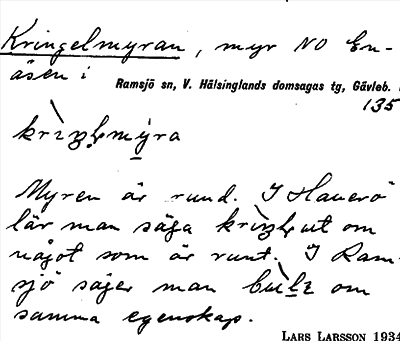 Kringelmyran, myr NO En-
åsen i
Ramsjö sn, V. Hälsinglands domsagas tg, Gävleb.
135
Myren är rund. I Haverö
lär man säga ut om
något som är runt. I Ram-
sjö säger man om
samma egenskap.
LARS LARSSON 1934